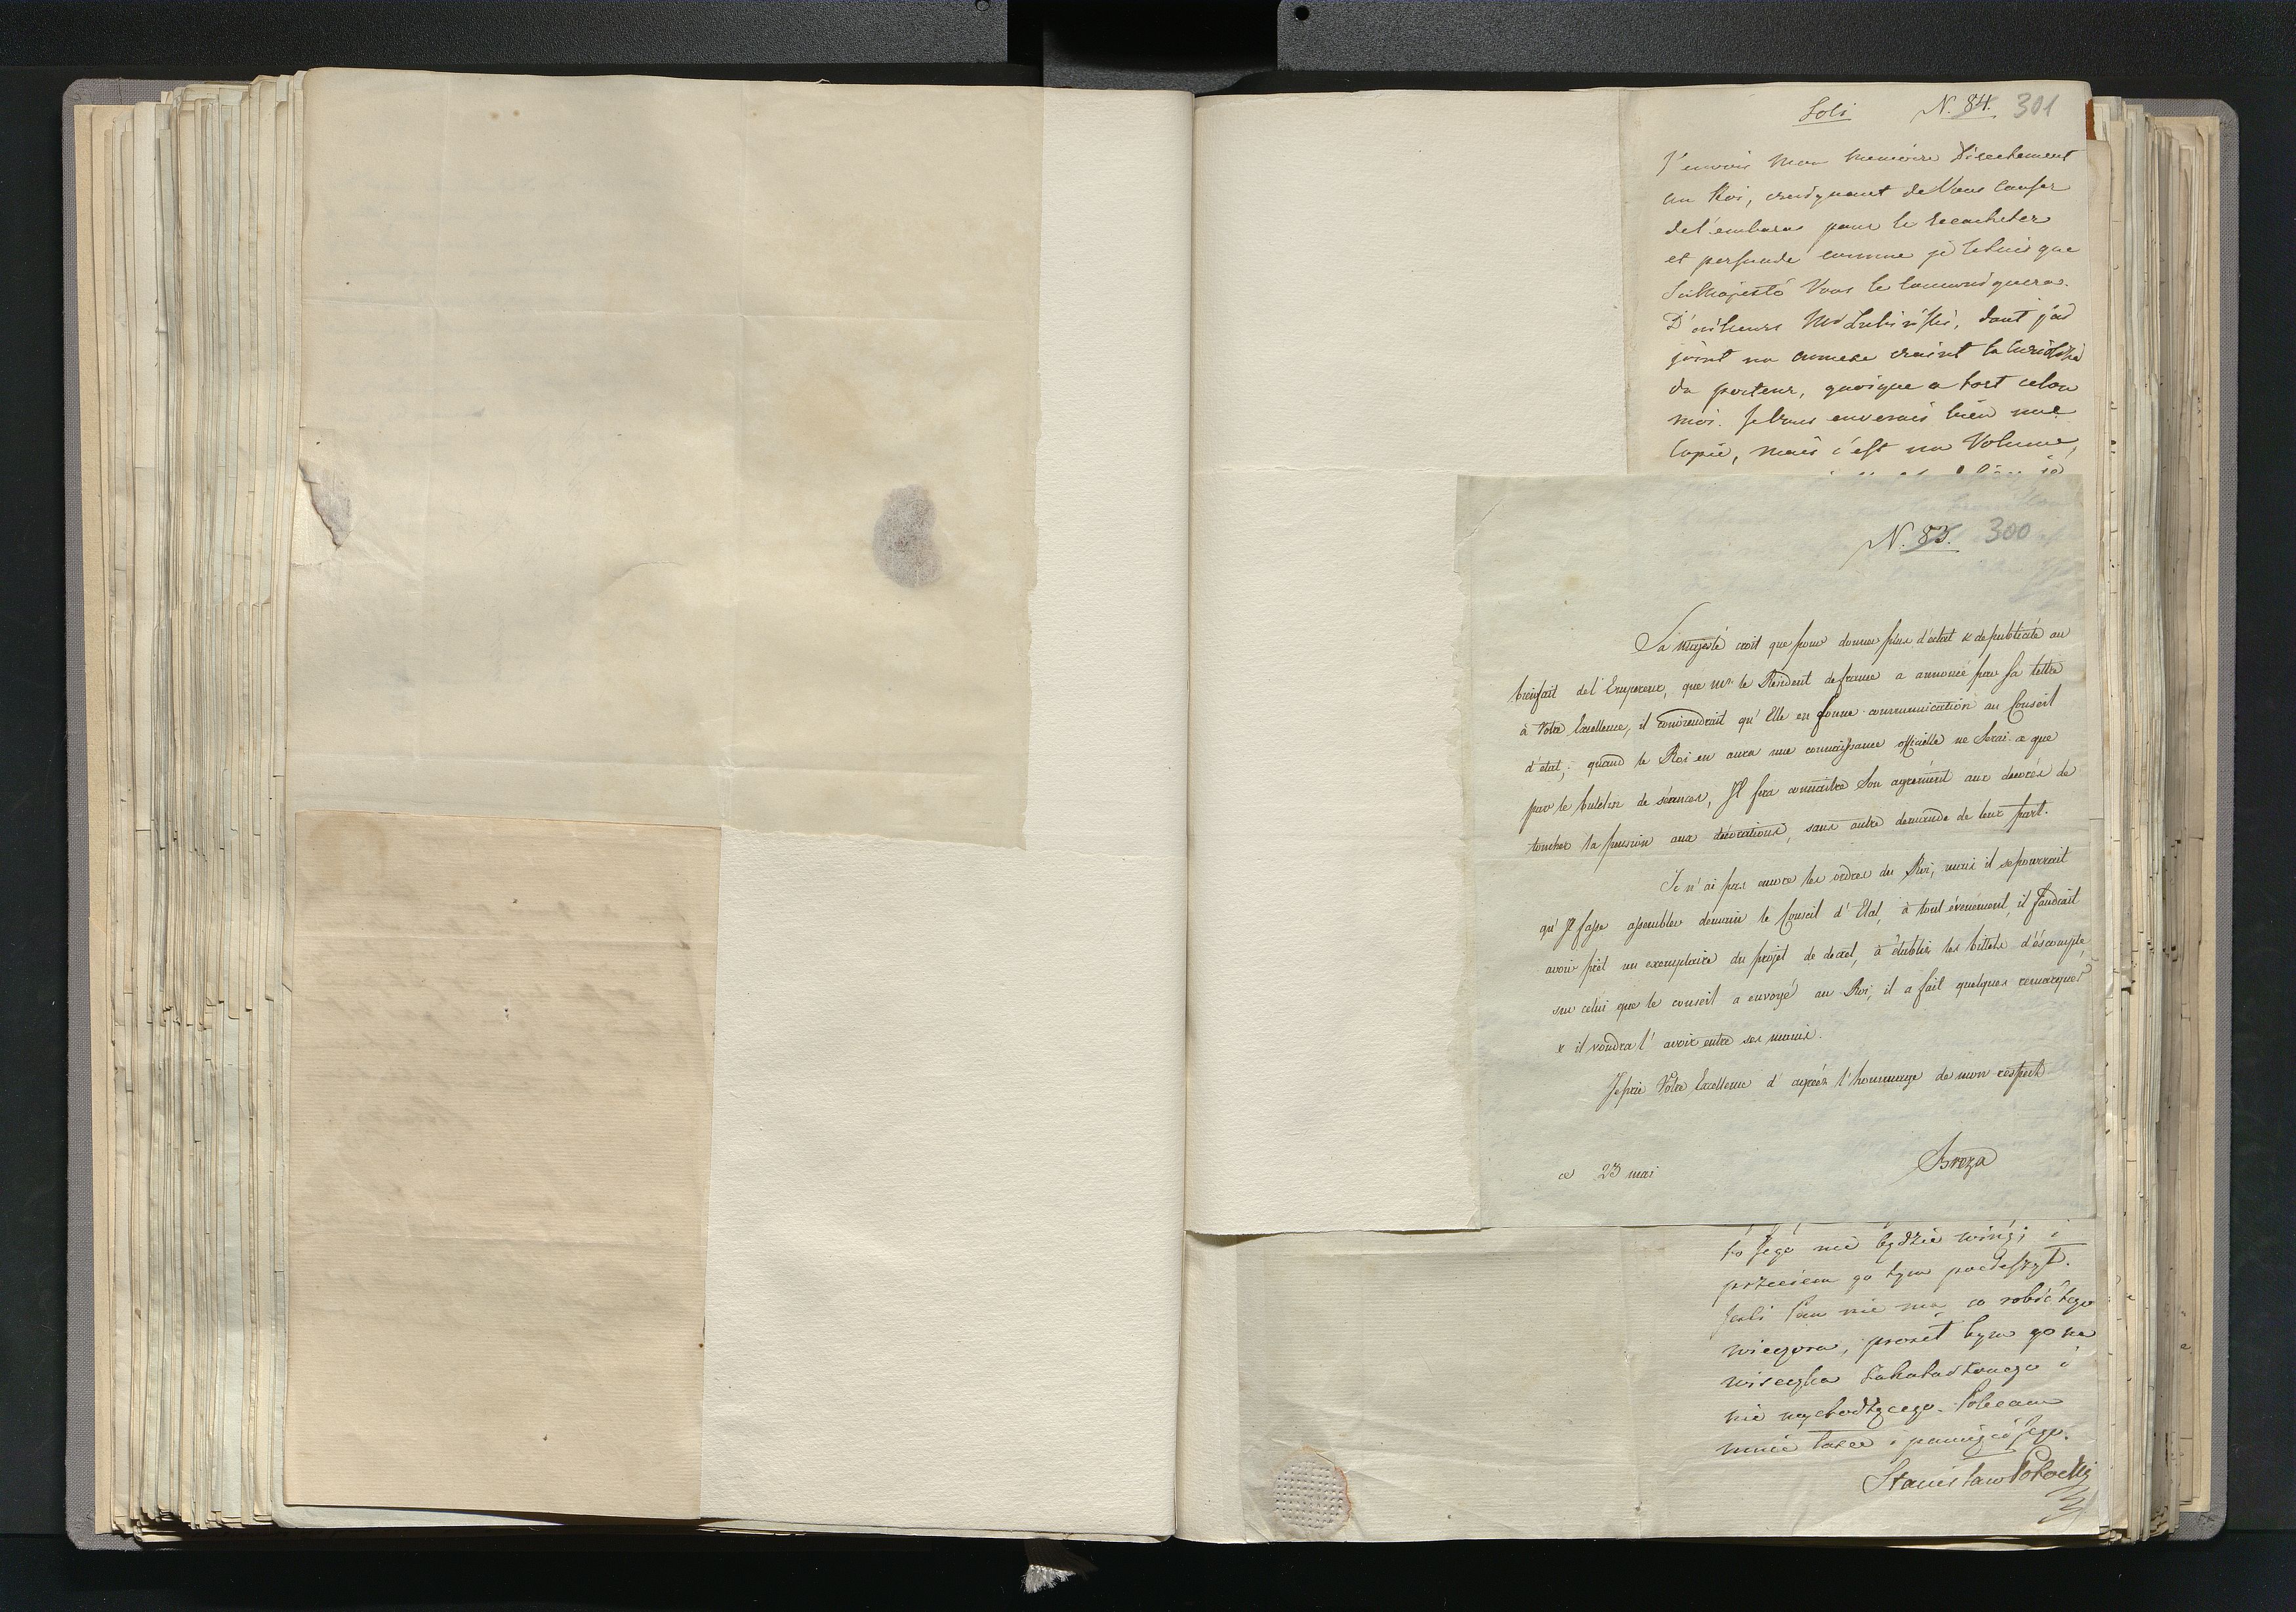 Soli N. 84. 301
J'envois mon memoire directement
au Roi, craignant de Vous causer
de l'embaras pour le recacheter
et persuadé comme je le suis que
Sa Majesté Vous le comuniquera.
D'ailleurs Mr Lubinski, dont j'ai
joint un annexe craint la curiosité
du porteur, quoique a tort celon
moi. Je Vous enverais bien une
Copie, mais c'est un Volume,
N. 83. 300
Sa Majesté croit que pour donner plus d'éclat & de publicité au
bienfait de l'Empereur, que Mr le Résident de france a annoncé par sa lettre
à Votre Excellence, il conviendrait qu'Elle en donne communication au Conseil
d'état; quand le Roi en aura une connaissance officielle ne serai-ce que
par le buletin de séances, Il fera connaitre Son agrément aux décorés de
toucher la pension aux décorations, sans autre demande de leur part.
Je n'ai pas encore les ordres du Roi, mais il se pourrait
qu'Il fasse assembler demain le Conseil d'Etat, à tout évenément, il faudrait
avoir prêt un exemplaire du projet de decret, à établir les billets d'éscompte,
sur celui que le conseil a envoyé au Roi, il a fait quelques remarques
& il voudra l'avoir entre ses mains.
Je prie Votre Excellence d'agréer l'hommage de mon respect
Breza
ce 23 mai
to Jego nie będzie winą; i
przeciem go tym pocieszył.
Jesli Pan nie ma co robić tego
wieczora, prosił bym go na
wiseczka
nie wychodzącego. Polecam
mnie łasce i pamięci Jego.
Stanisław Potocki